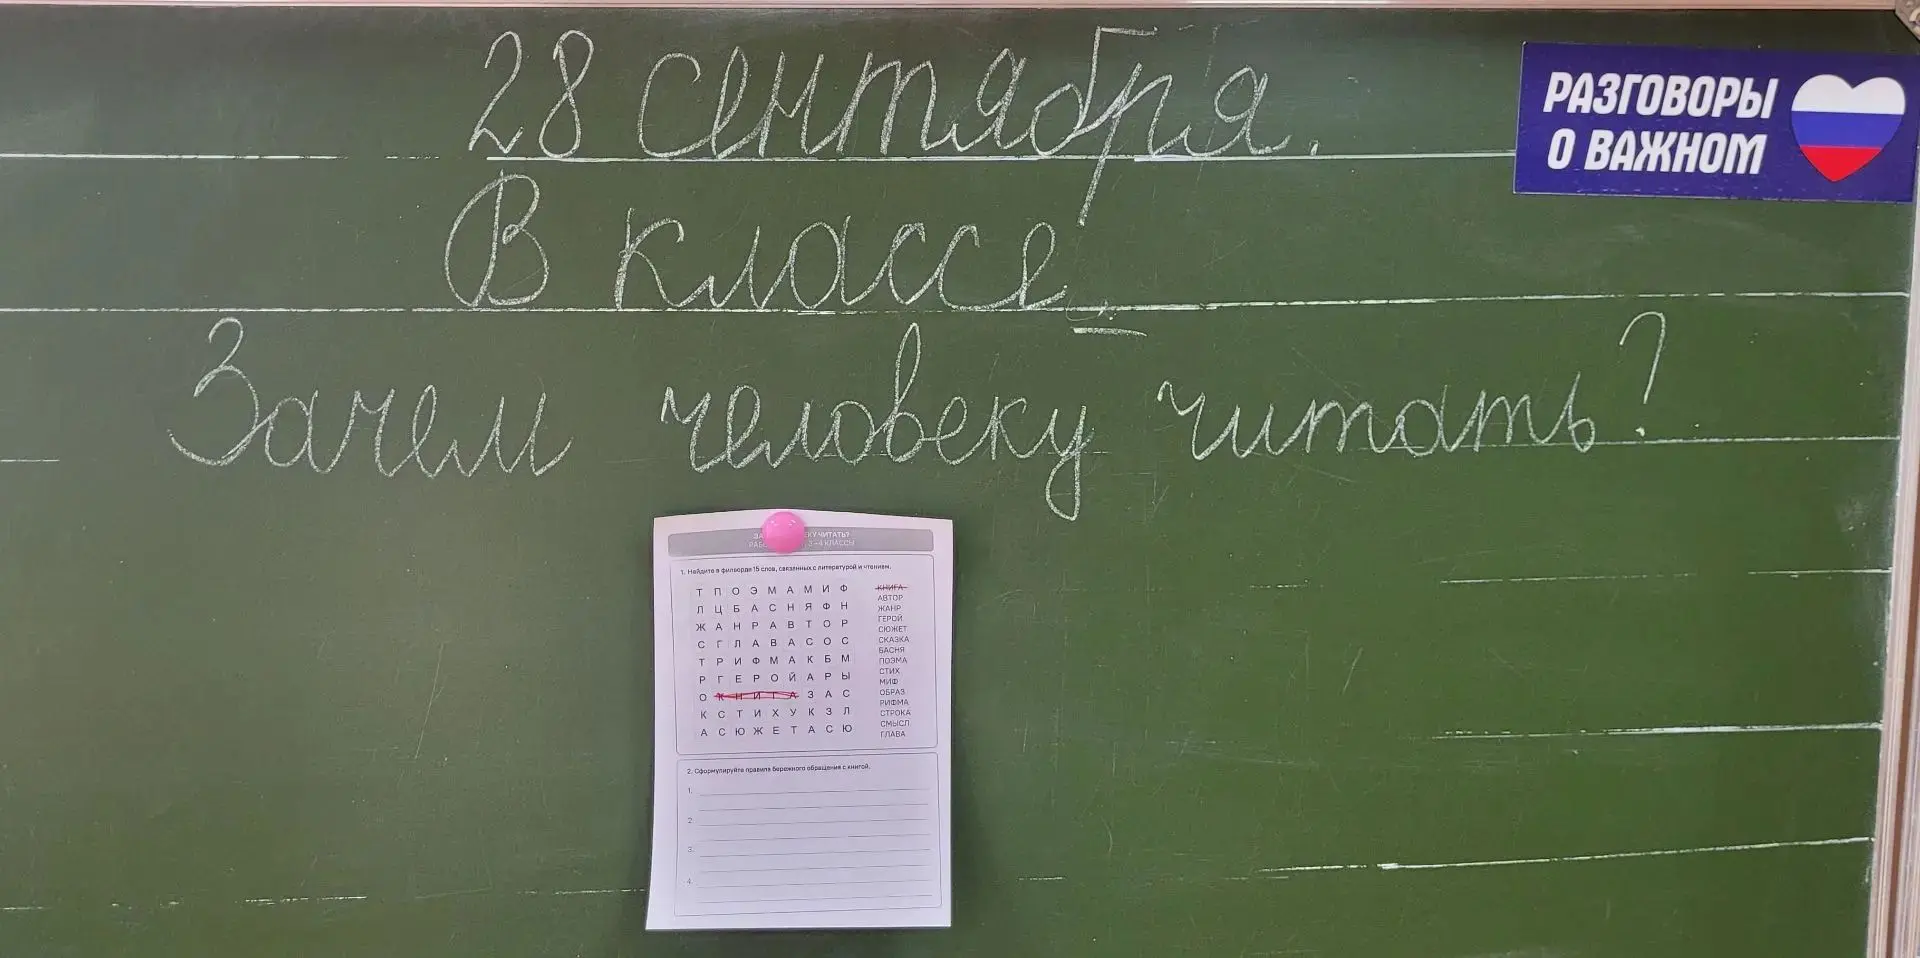 28 сентября.
В классе
Зачем человеку читать?
РАЗГОВОРЫ
О ВАЖНОМ
ЗА КУ ЧИТАТЬ?
РАБ 3–4 КЛАССЫ
1. Найдите в филворде 15 слов, связанных с литературой и чтением.
Т П О Э М А М И Ф
Л Ц Б А С Н Я Ф Н
Ж А Н Р А В Т О Р
С Г Л А В А С О С
Т Р И Ф М А К Б М
Р Г Е Р О Й А Р Ы
О К Н И Г А З А С
К С Т И Х У К З Л
А С Ю Ж Е Т А С Ю
КНИГА
АВТОР
ЖАНР
ГЕРОЙ
СЮЖЕТ
СКАЗКА
БАСНЯ
ПОЭМА
СТИХ
МИФ
ОБРАЗ
РИФМА
СТРОКА
СМЫСЛ
ГЛАВА
2. Сформулируйте правила бережного обращения с книгой.
1.
2.
3.
4.